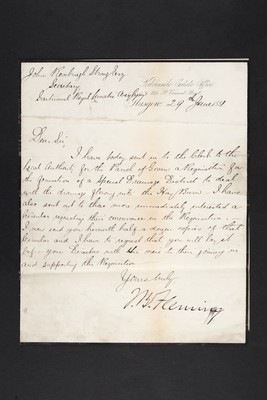 John Strang Esq
Secretary
Gartnavel Royal Lunatic Asylum
Kelvinside Estate Office
Glasgow 29th June 1881
Dear Sir
I have today sent in to the Clerk to the
Local Authority for the Parish of Govan a Requisition for
the formation of a Special Drainage District to deal
with the drainage flowing into the Hay Burn. I have
also sent out to those more immediately interested a
Circular regarding their concurrence in the Requisition.
I now send you herewith half a dozen copies of that
Circular and I have to request that you will lay it
before your Directors with the view to their joining in
and supporting the Requisition
Yours truly
J. B. Fleming